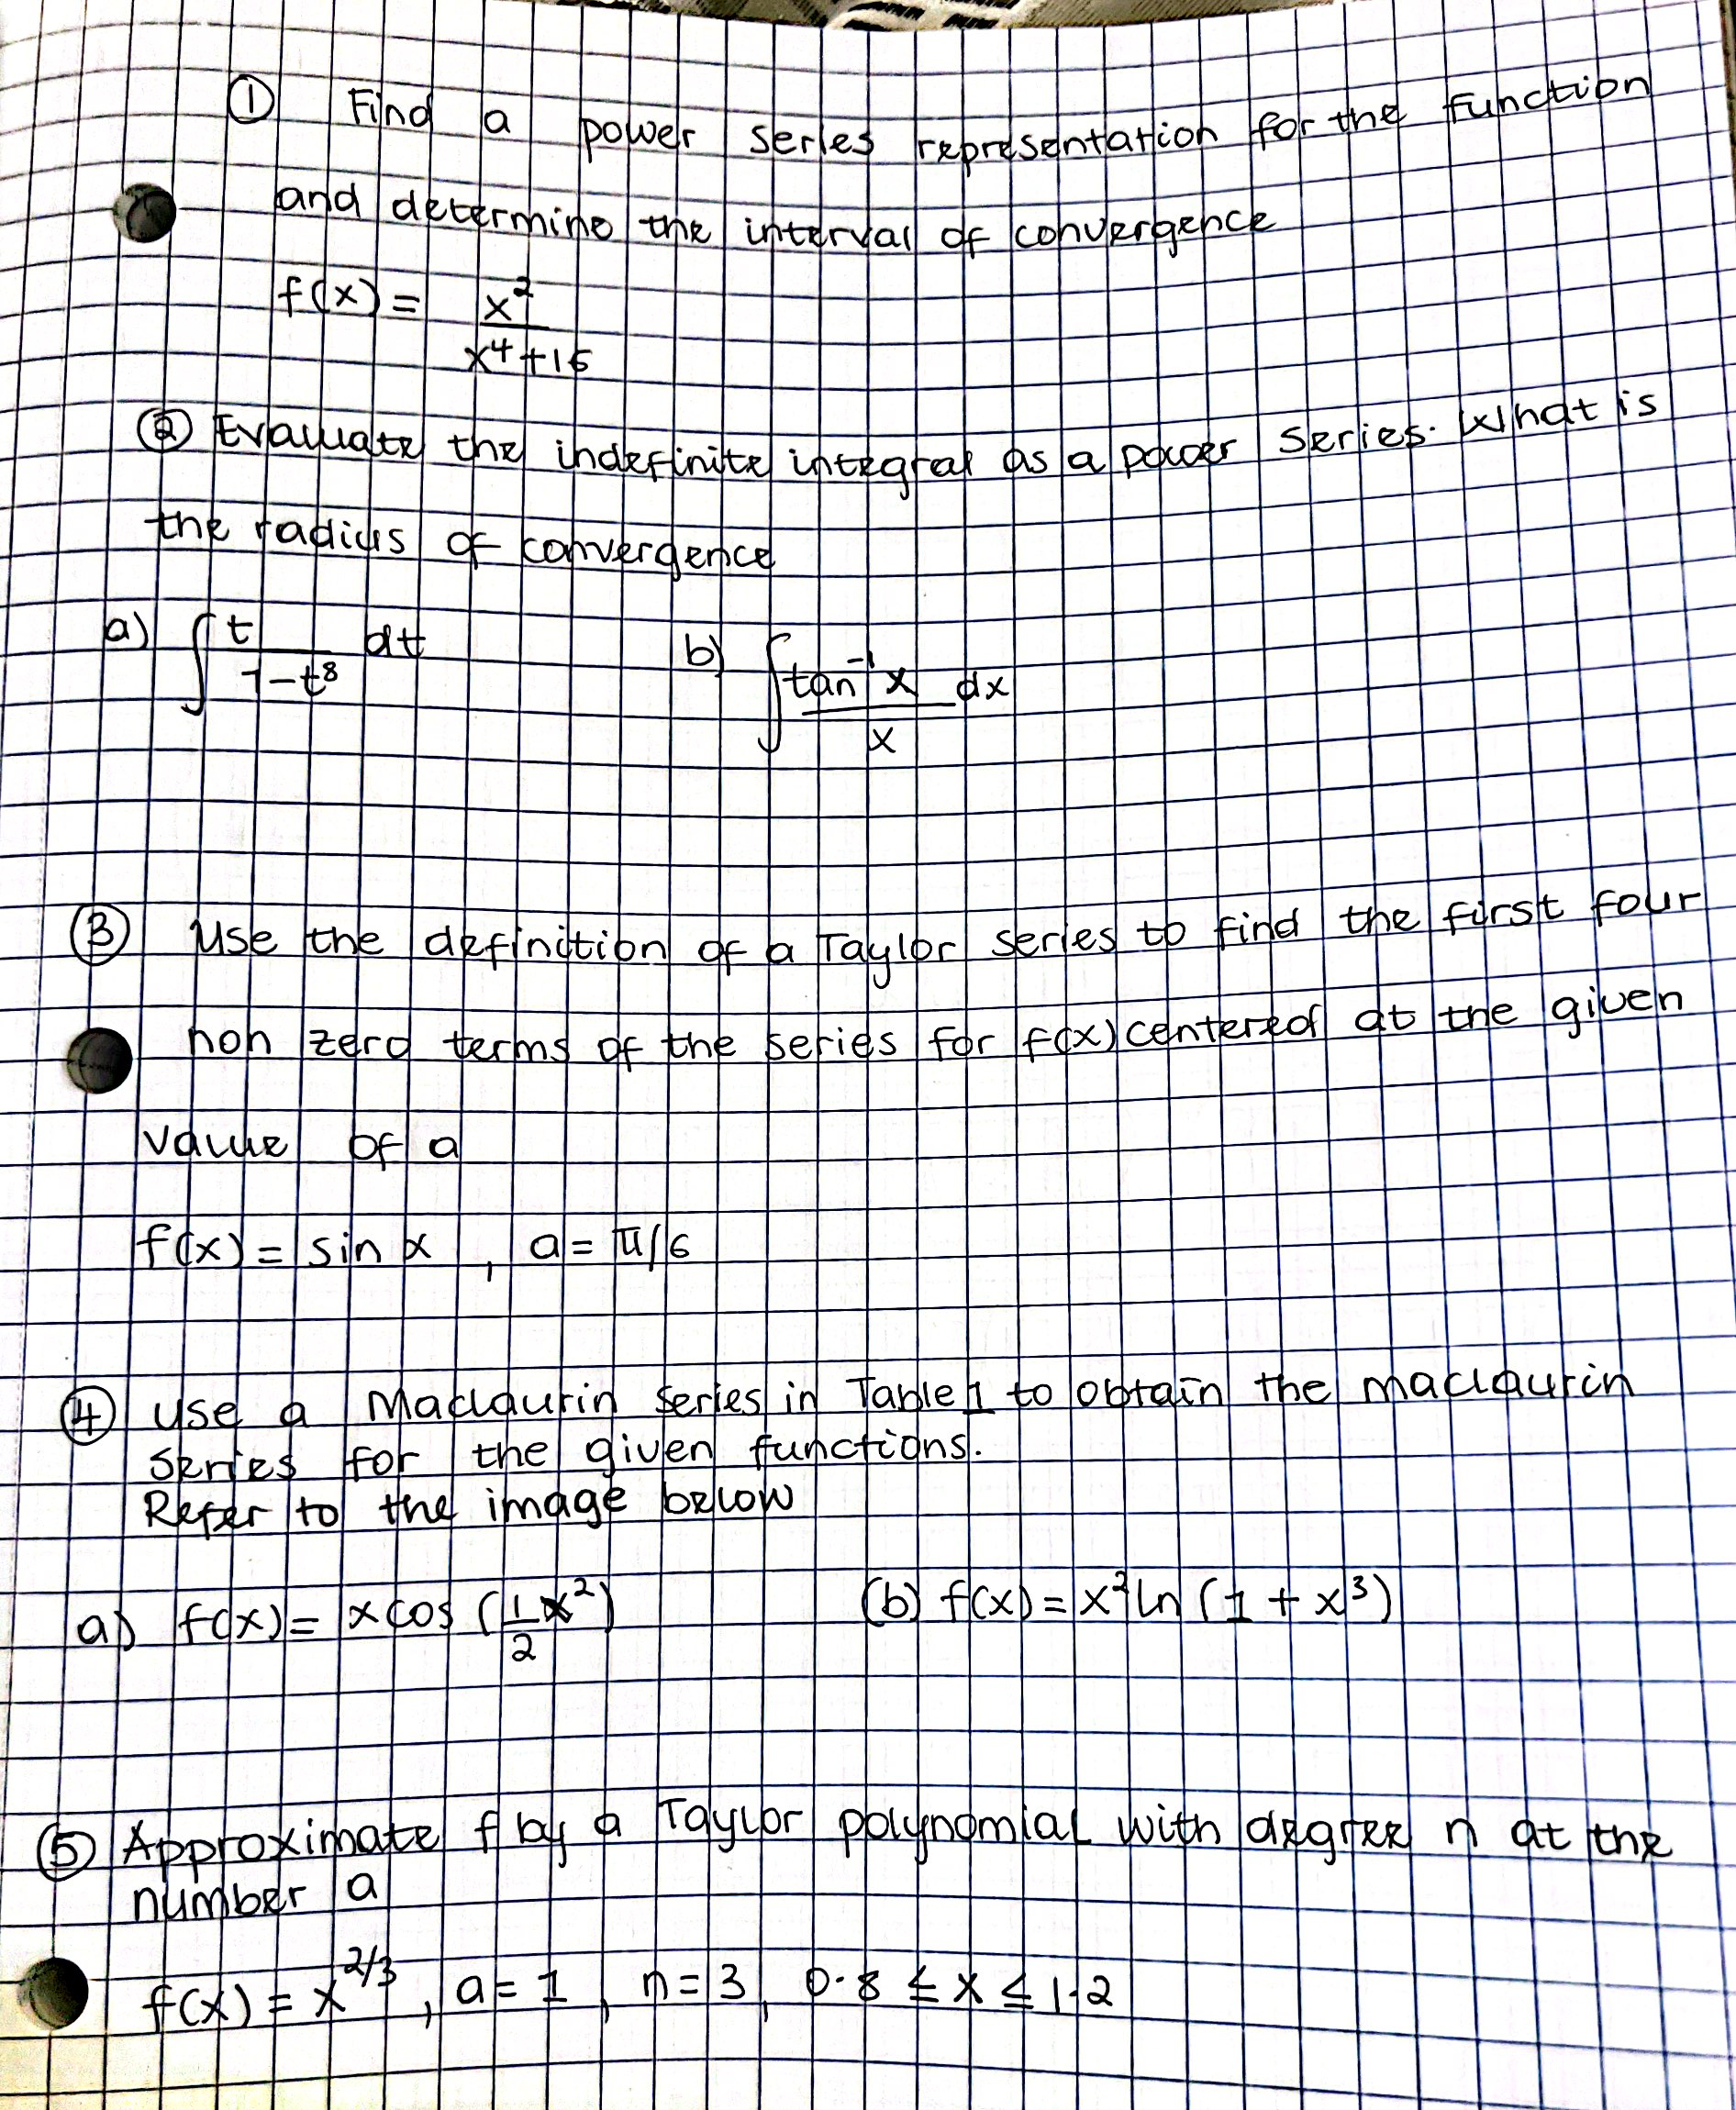 ① Find a power series representation for the function
and determine the interval of convergence
f(x) = x²/(x⁴+16)
② Evaluate the indefinite integral as a power series. What is
the radius of convergence
a) ∫ t/(1-t⁸) dt b) ∫ tan⁻¹x/x dx
③ Use the definition of a Taylor series to find the first four
non zero terms of the series for f(x) centered at the given
value of a
f(x) = sin x , a = π/6
④ use a Maclaurin series in Table 1 to obtain the maclaurin
series for the given functions.
Refer to the image below
a) f(x) = x cos (1/2 x²) (b) f(x) = x² ln (1 + x³)
⑤ Approximate f by a Taylor polynomial with degree n at the
number a
f(x) = x^2/3 , a = 1 , n = 3 , 0.8 ≤ x ≤ 1.2